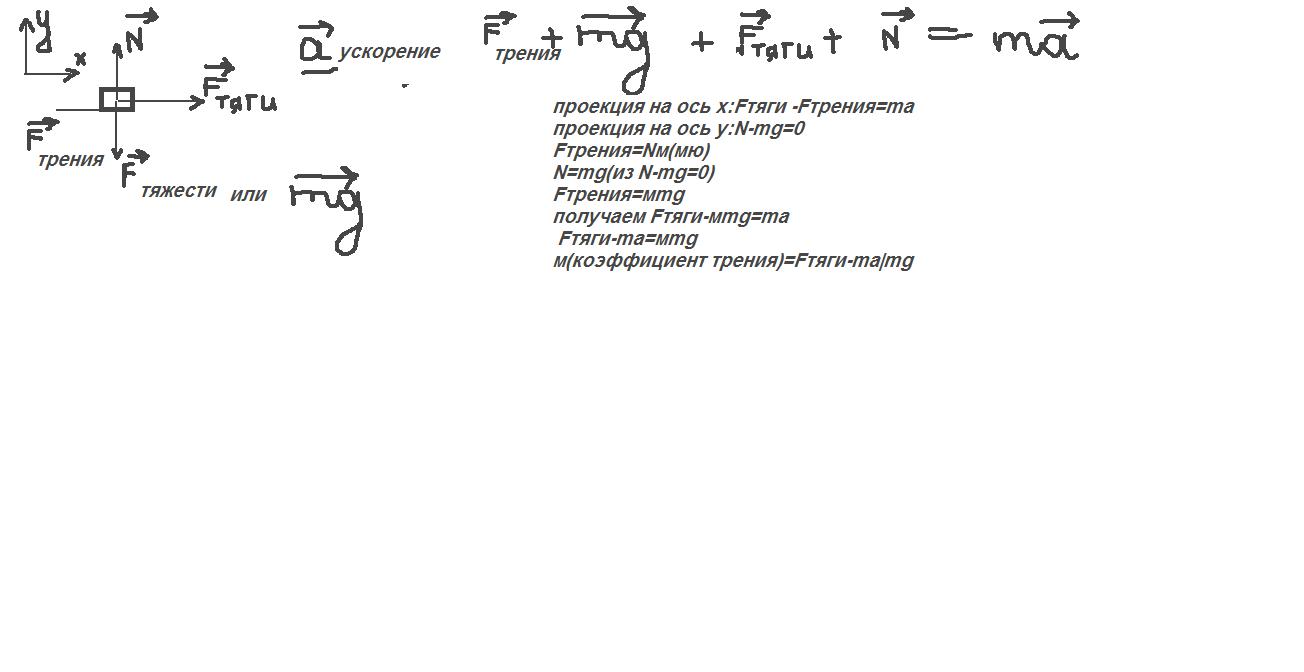 y
x
N
Fтяги
Fтрения
Fтяжести или mg
a ускорение
Fтрения + mg + Fтяги + N = ma
проекция на ось x:Fтяги -Fтрения=ma
проекция на ось y:N-mg=0
Fтрения=Nм(мю)
N=mg(из N-mg=0)
Fтрения=мmg
получаем Fтяги-мmg=ma
Fтяги-ma=мmg
м(коэффициент трения)=Fтяги-ma|mg